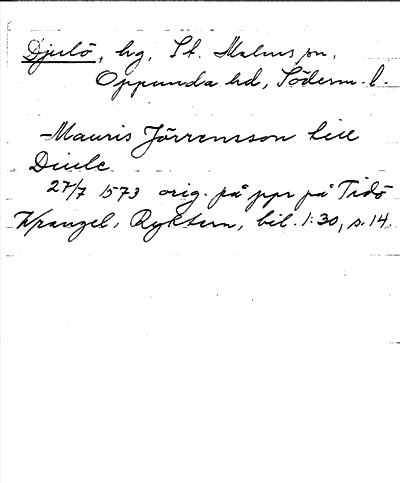 Djulö, hg, St. Malms sn,
Oppunda hd, Söderm. l.
Mauris Jörrensson
Diule
27/7 1573 orig. på ppr på Tidö
Wrangel, Ryttern, bil. 1:30, s. 14.